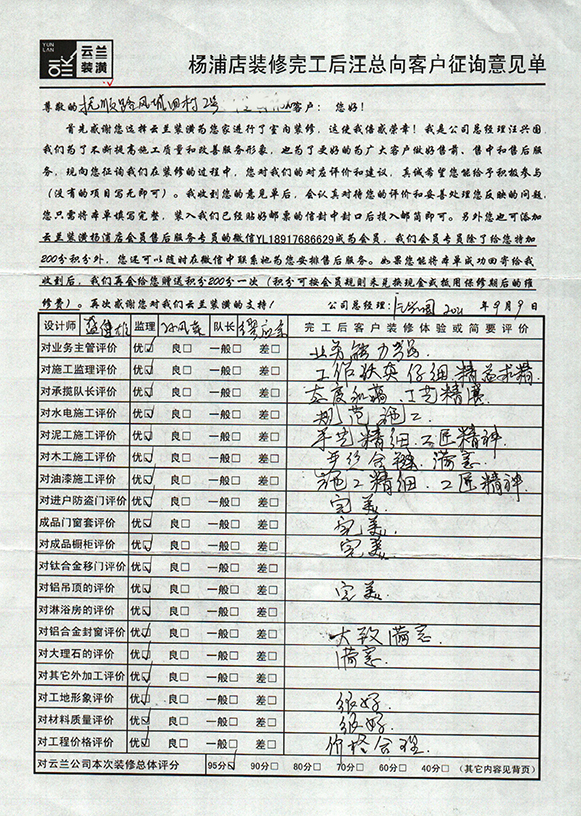 YUN LAN 云兰装潢
杨浦店装修完工后汪总向客户征询意见单
尊敬的抚顺路凤城四村2号 客户： 您好！
首先感谢您选择云兰装潢为您家进行了室内装修，这使我倍感荣幸！我是公司总经理汪兴国，
我们为了不断提高施工质量和改善服务形象，也为了更好的为广大客户做好售前、售中和售后服
务，现向您征询我们在装修的过程中，您对我们的对应评价和建议，真诚希望您能给予积极参与
（没有的项目写无即可）。我收到您的意见单后，会认真对待您的评价和妥善处理您反映的问题，
您只需将本单填写完整，装入我们已经贴好邮票的信封中封口后投入邮筒即可。另外您也可添加
云兰装潢杨浦店会员售后服务专员的微信YL18917686629成为会员，我们会员专员除了给您特加
200分积分外，您还可以随时在微信中联系她为您安排售后服务。如果您能将本单成功回寄给我
收到后，我们再会给您赠送积分200分一次（积分可按会员规则来兑换现金或抵用保修期后的维
修费）。再次感谢您对我们云兰装潢的支持！ 公司总经理：汪兴国 2021年9月9日
设计师 监理 孙凤东 队长 完工后客户装修体验或简要评价
对业务主管评价 优☑ 良□ 一般□ 差□ 业务能力强.
对施工监理评价 优☑ 良□ 一般□ 差□ 工作踏实 仔细 精益求精.
对承揽队长评价 优☑ 良□ 一般□ 差□ 态度和蔼 工艺精湛
对水电施工评价 优☑ 良□ 一般□ 差□ 规范施工
对泥工施工评价 优☑ 良□ 一般□ 差□ 手艺精细.工匠精神.
对木工施工评价 优☑ 良□ 一般□ 差□ 合理 满意
对油漆施工评价 优☑ 良□ 一般□ 差□ 施工精细.工匠精神.
对进户防盗门评价 优☑ 良□ 一般□ 差□ 完美.
成品门窗套评价 优☑ 良□ 一般□ 差□ 完美.
对成品橱柜评价 优☑ 良□ 一般□ 差□ 完美
对钛合金移门评价 优☑ 良□ 一般□ 差□
对铝吊顶的评价 优☑ 良□ 一般□ 差□ 完美.
对淋浴房的评价 优☑ 良□ 一般□ 差□
对铝合金封窗评价 优☑ 良□ 一般□ 差□ 大致满意.
对大理石的评价 优☑ 良□ 一般□ 差□ 满意.
对其它外加工评价 优☑ 良□ 一般□ 差□
对工地形象评价 优☑ 良□ 一般□ 差□ 很好.
对材料质量评价 优☑ 良□ 一般□ 差□ 很好.
对工程价格评价 优☑ 良□ 一般□ 差□ 价格合理.
对云兰公司本次装修总体评分 95分☑ 90分□ 80分□ 70分□ 60分□ 40分□ （其它内容见背页）